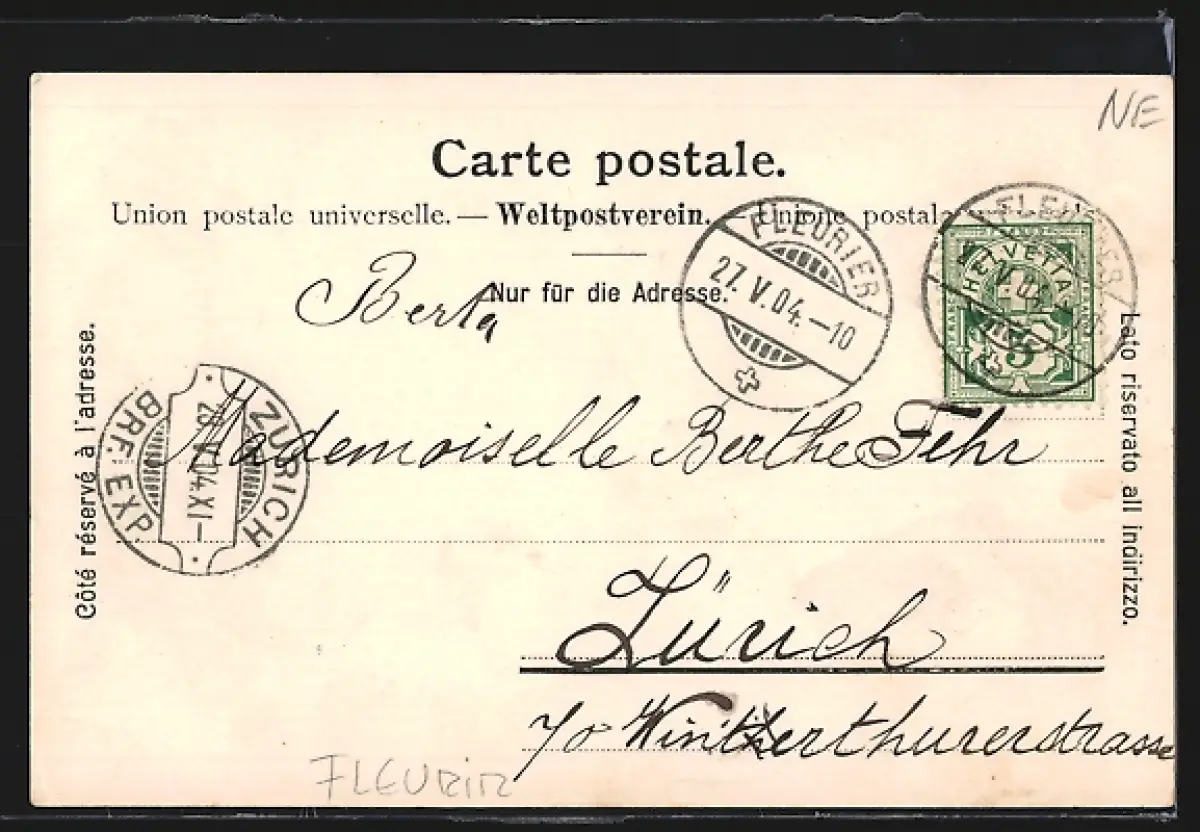 NE
Carte postale.
Union postale universelle. — Weltpostverein. — Unione postale
Nur für die Adresse.
Berta
FLEURIER
27. V. 04. — 10
FLEURIER
V. 04
HELVETIA
5
Côté réservé à l'adresse.
Lato riservato all indirizzo.
ZÜRICH
V. 04. XI —
BRF. EXP.
Mademoiselle Berthe Fehr
Zürich
70 Wintherthurerstrasse
FLEURIER